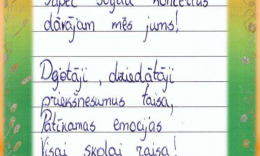 Tāpēc šogad koncertus
dāvājam mēs jums!
Dejotāji, dziedātāji
priekšnesumus taisa,
Patīkamas emocijas
Visai skolai raisa!